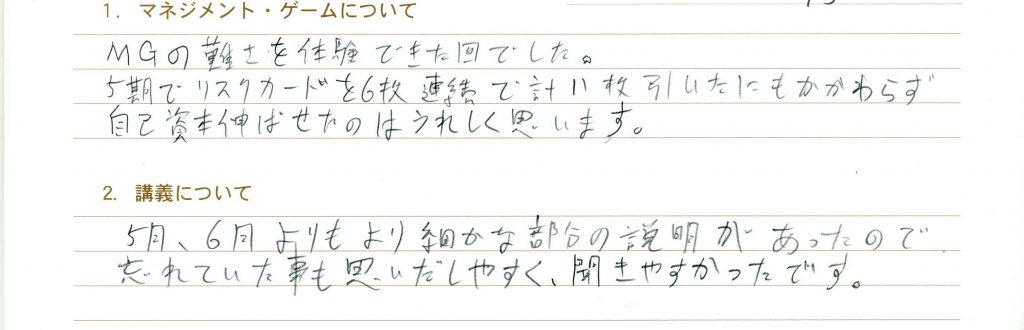 1. マネジメント・ゲームについて
MGの難さを体験できた回でした。
5期でリスクカードを6枚連続で計11枚引いたにもかかわらず
自己資本伸ばせたのはうれしく思います。
2. 講義について
5月、6月よりもより細かな部分の説明があったので
忘れていた事も思いだしやすく、聞きやすかったです。